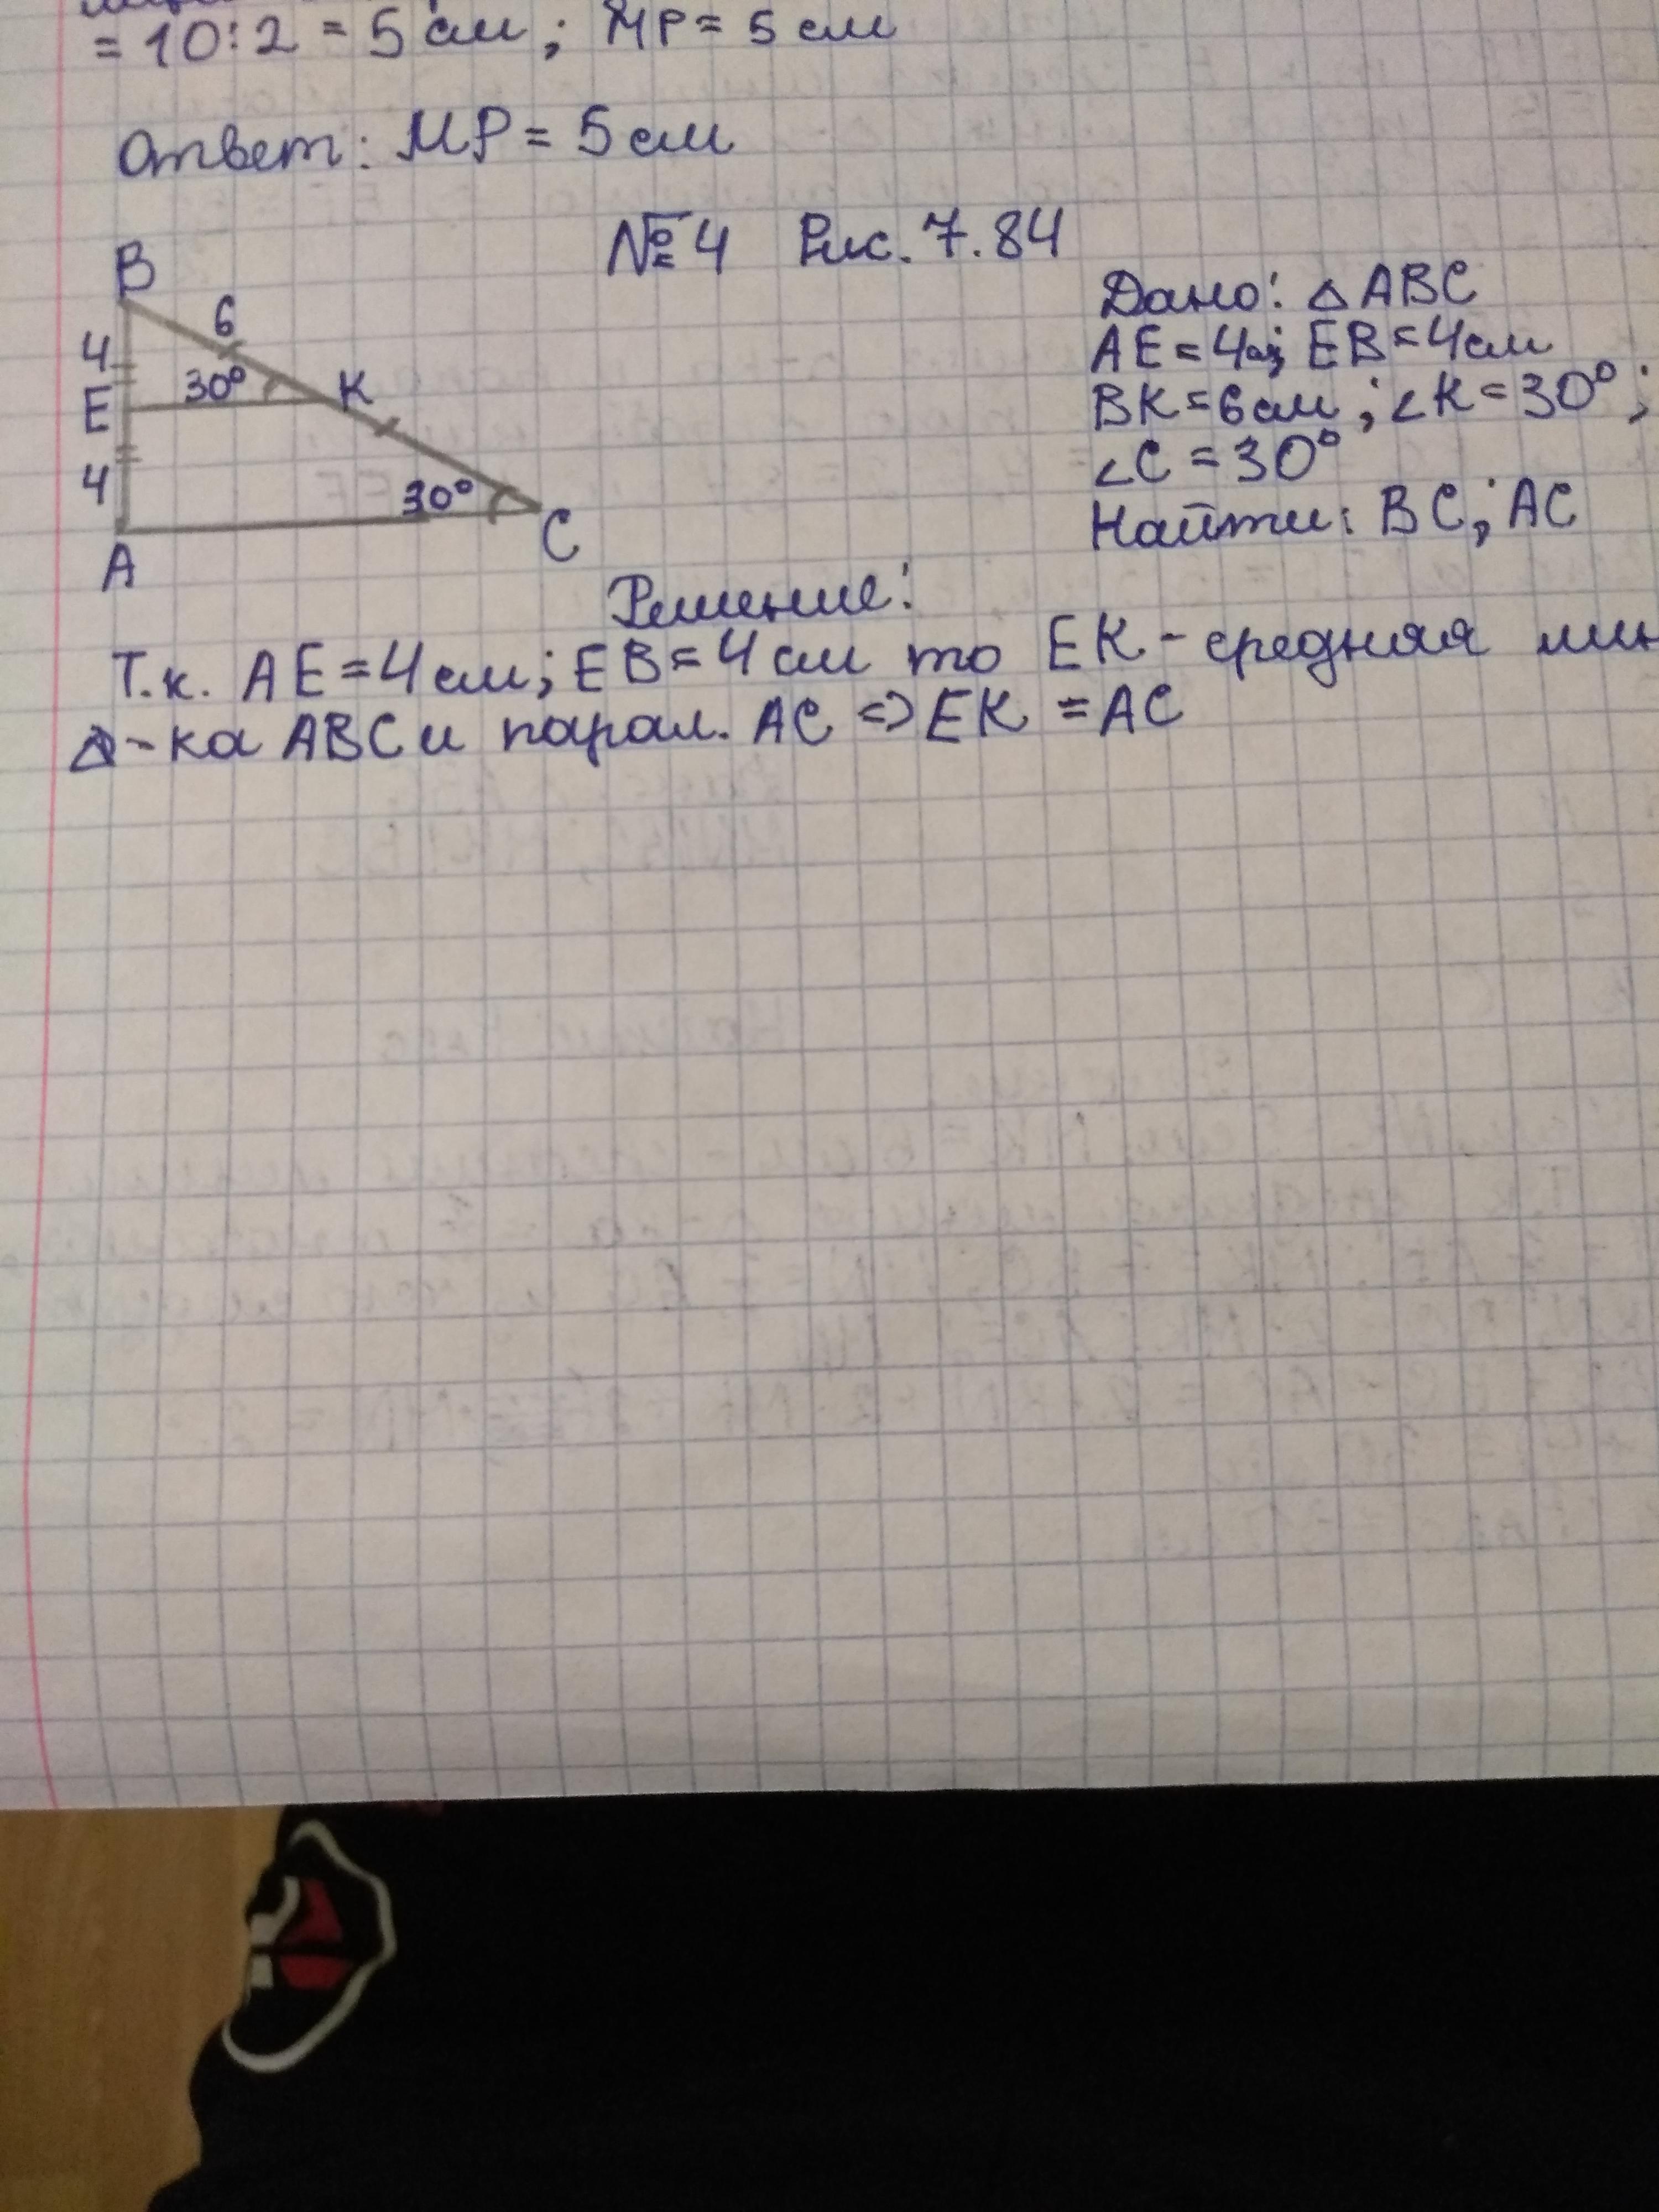 = 10:2 = 5 см; МР = 5 см
Ответ: МР = 5 см
№4 Рис. 7.84
B
6
4
30°
K
E
4
30°
A
C
Дано: △ABC
AE = 4см; EB = 4см
BK = 6 см; ∠K = 30°;
∠C = 30°
Найти: BC; AC
Решение:
Т.к. AE = 4 см; EB = 4 см то EK - средняя лин
△-ка ABC и парал. AC => EK = AC